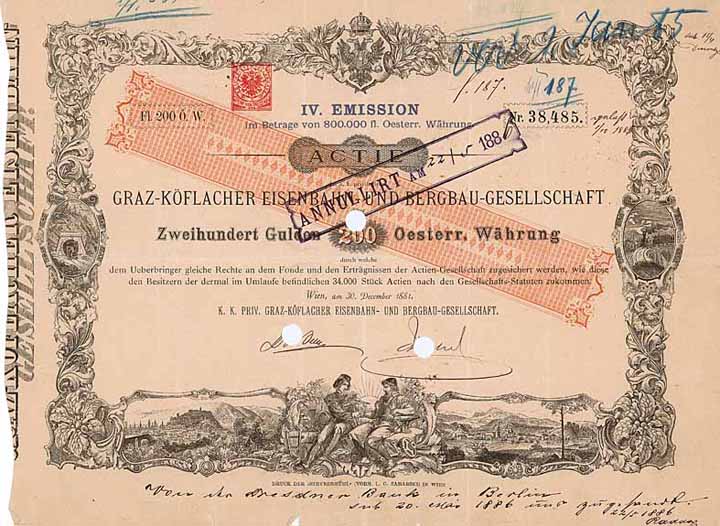 vor 1 Jan 85
187
f. 187.
IV. EMISSION
im Betrage von 800.000 fl. Oesterr. Währung.
Fl. 200 Ö. W.
Nr. 38,485.
ACTIE
ANNULLIRT AM 22/5 1886
GRAZ-KÖFLACHER EISENBAHN- UND BERGBAU-GESELLSCHAFT
Zweihundert Gulden 200 Oesterr. Währung
durch welche
dem Ueberbringer gleiche Rechte an dem Fonde und den Erträgnissen der Actien-Gesellschaft zugesichert werden, wie diese
den Besitzern der dermal im Umlaufe befindlichen 34.000 Stück Actien nach den Gesellschafts-Statuten zukommen.
Wien, am 30. December 1881.
K. K. PRIV. GRAZ-KÖFLACHER EISENBAHN- UND BERGBAU-GESELLSCHAFT.
Von der Dresdner Bank in Berlin
sub 20. Mai 1886 uns zugesandt
22/5 1886